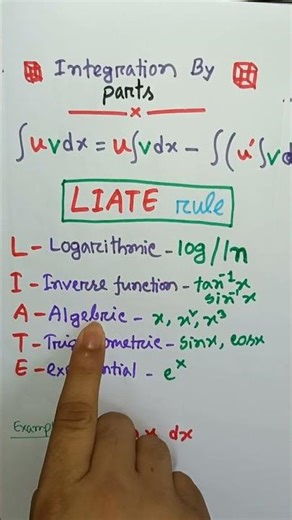 Integration By
Parts
∫uvdx = u∫vdx - ∫(u'∫vd
LIATE rule
L - Logarithmic - log/ln
I - Inverse function - tan⁻¹x
sin⁻¹x
A - Algebric - x, x², x³
T - Trigonometric - sinx, cosx
E - exponential - eˣ
dx